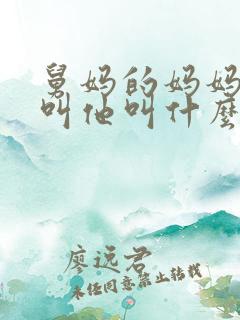 舅妈的妈妈
叫他叫什麽
廖远君
未经同意禁止转载